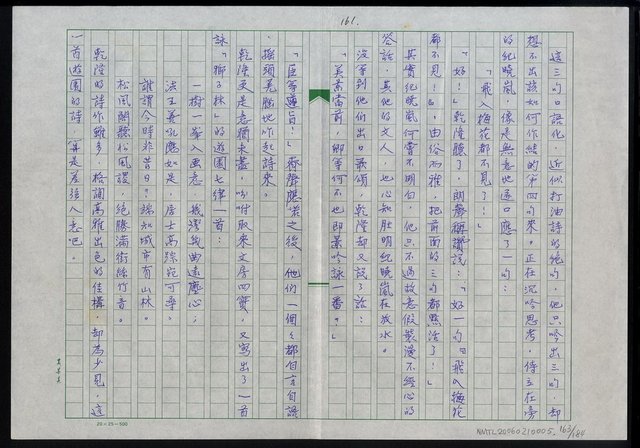 161.
這三句口語化,近似打油詩的絕句,他只吟出三句,卻
想不出該如何作結的第四句來。正在沉吟思考,侍立在旁
的紀曉嵐,像是無意地逐口應了一句:
「飛入梅花都不見了!」
「好!」乾隆聽了,朗聲稱讚說:「好一句『飛入梅花
都不見!』,由俗而雅,把前面的三句都點活了!」
其實紀曉嵐何嘗不明白,他只不過故意假裝漫不經心的
答話,其他的文人,也心知肚明紀曉嵐在放水。
沒等到他們出口最頌,乾隆卻又說了話:
「美景當前,卿等何不也即景吟詠一番?」
「臣等遵旨!」齊聲應諾之後,他們一個個都自言自語
,搖頭晃腦地吟起詩來。
乾隆更是意猶未盡,吩咐取來文房四寶,又寫出了一首
詠「獅子林」的遊園七律一首:
一樹一峯入畫意 幾灣我曲遠塵心;
法王善吼應如是,居士高踪宛可尋。
誰謂今時非昔日?端知城市有山林。
松風閣聽松風謖,絕勝滿街絲竹音。
乾隆的詩作雖多,格調高雅出色的佳構,卻為少見,這
一首遊園的詩,算是差強人意吧。
20×25=500
NMTL20060210005_163/184